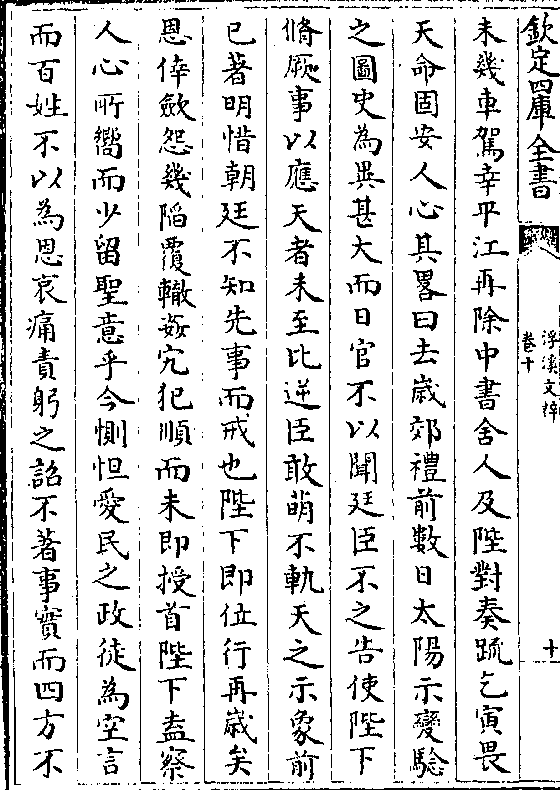 欽定四庫全書
浮溪文粹
卷十
十
未幾車駕幸平江再除中書舍人及陛對奏疏乞寅畏
天命固安人心其畧曰去歲郊禮前數日太陽示變驗
之圖史為異甚大而日官不以聞廷臣不之告使陛下
脩厥事以應天者未至比逆臣敢萌不軌天之示象前
已著明惜朝廷不知先事而戒也陛下即位行再歲矣
恩倖斂怨幾陷覆轍姦宄犯順而未即授首陛下盍察
人心所嚮而少留聖意乎今惻怛愛民之政徒為空言
而百姓不以為恩哀痛責躬之詔不著事實而四方不